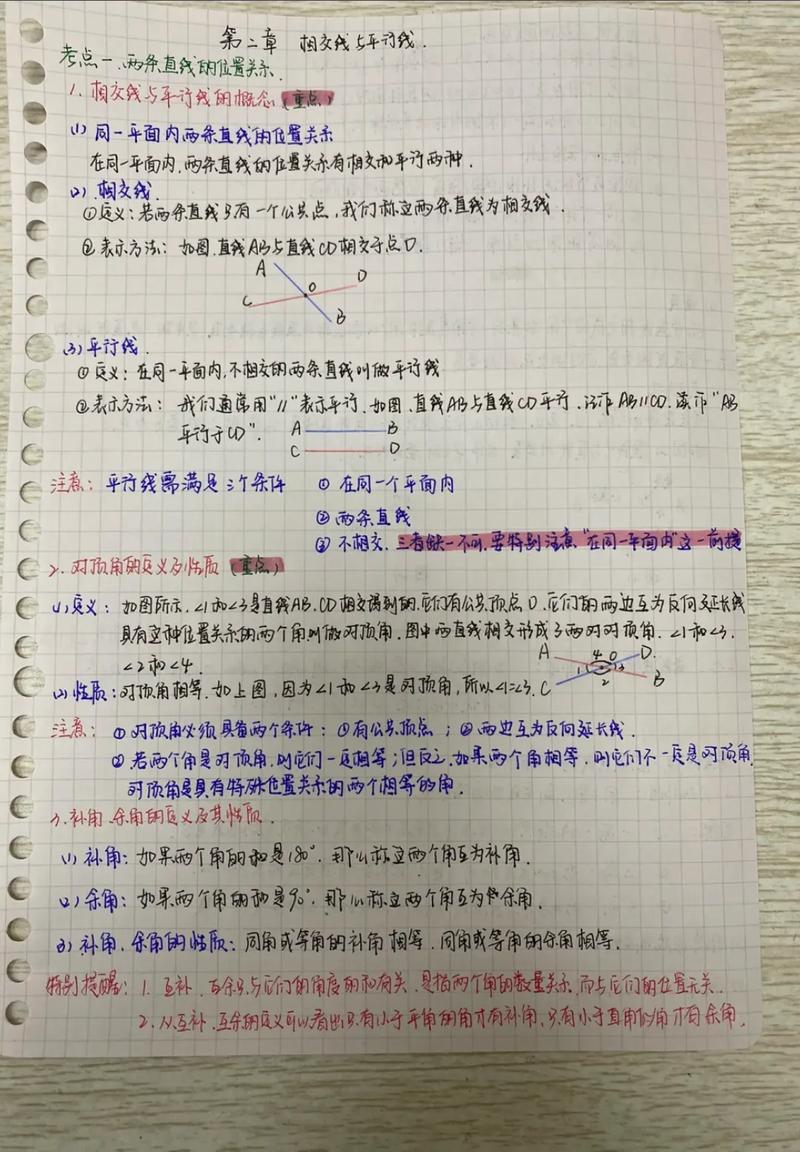 第二章 相交线与平行线.
考点一.两条直线的位置关系.
1.相交线与平行线的概念(重点)
(1) 同一平面内两条直线的位置关系
在同一平面内.两条直线的位置关系有相交和平行两种.
(2) 相交线.
①定义:若两条直线只有一个公共点,我们称这两条直线为相交线.
②表示方法: 如图.直线AB与直线CD相交于点O.
A
O
D
C
B
(3)平行线.
①定义:在同一平面内,不相交的两条直线叫做平行线
②表示方法: 我们通常用"//"表示平行.如图.直线AB与直线CD平行.记作AB//CD.读作"AB
平行于CD".
A B
C D
注意: 平行线需满足三个条件 ① 在同一个平面内
② 两条直线
③ 不相交.三者缺一不可.要特别注意"在同一平面内"这一前提
2.对顶角的定义及性质(重点)
(1)定义: 如图所示.∠1和∠3是直线AB.CD相交得到的.它们有公共顶点O.它们的两边互为反向延长线
具有这种位置关系的两个角叫做对顶角.图中两直线相交形成了两对对顶角.∠1和∠3.
∠2和∠4.
A 4 O D.
1 3
C 2 B
(2)性质:对顶角相等.如上图,因为∠1和∠3是对顶角,所以∠1=∠3.
注意: ① 对顶角必须具备两个条件: ①有公共顶点; ②两边互为反向延长线.
② 若两个角是对顶角.则它们一定相等;但反之.如果两个角相等.则它们不一定是对顶角
对顶角是具有特殊位置关系的两个相等的角.
3.补角.余角的定义及其性质.
(1) 补角: 如果两个角的和是180°.那么称这两个角互为补角.
(2) 余角: 如果两个角的和是90°.那么称这两个角互为余角.
(3) 补角.余角的性质: 同角或等角的补角相等.同角或等角的余角相等.
特别提醒: 1. 互补.互余只与它们的角度的和有关.是指两个角的数量关系.而与它们的位置无关.
2.从互补.互余的定义可以看出只有小于平角的角才有补角.只有小于直角的角才有余角.